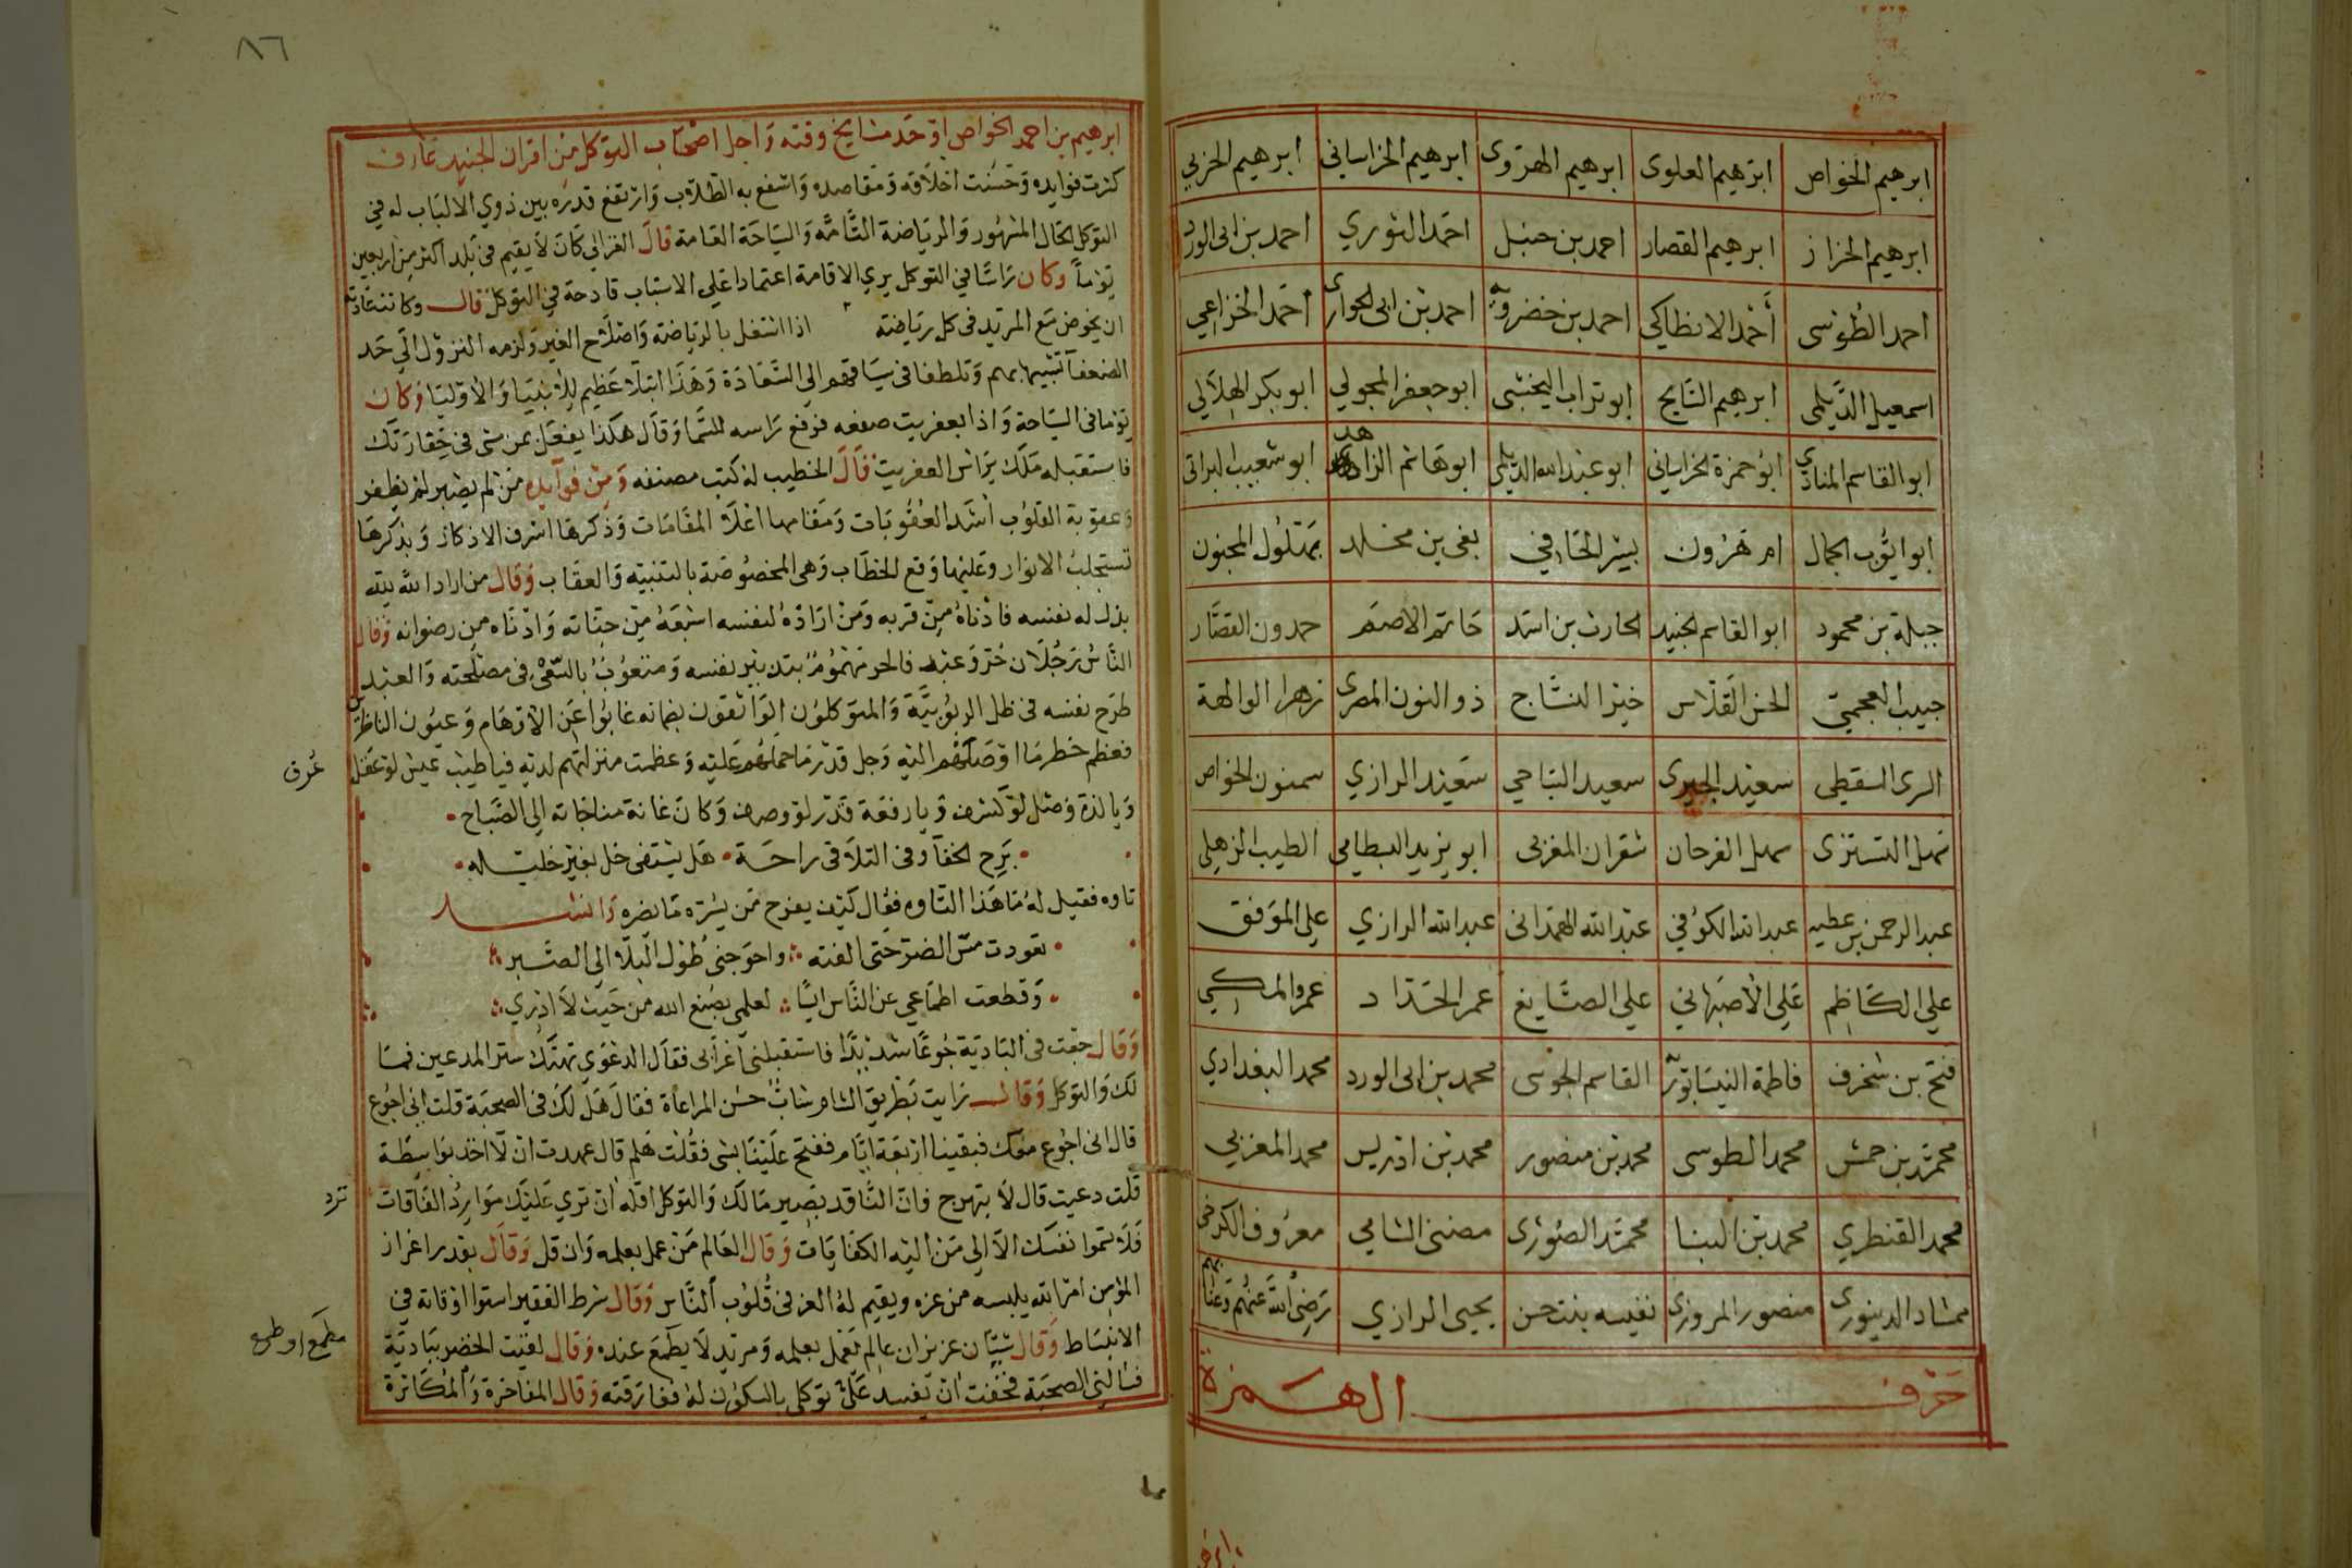 ابرهيم الخواص ابرهيم العلوى ابرهيم الهروى ابرهيم الخراسانى ابرهيم الحربي
ابرهيم الخراز ابرهيم القصار احمد بن حنبل احمد النوري احمد بن ابى الورد
احمد الطوسى أحمد الانطاكي احمد بن خضرويه احمد بن ابى الحوارى احمد الخزاعي
اسمعيل الديلمى ابرهيم السايح ابو تراب النخشبى ابو جعفر المجولي ابو بكر الهلالي
ابو القاسم المنادي ابو حمزة الخراسانى ابو عبد الله الديلمى ابو هاشم الزاهد ابو شعيب البراثى
ابو ايوب الجمال ام هرون بشر الحافي بقى بن مخلد بهلول المجنون
جبلة بن محمود ابو القاسم الجنيد الحارث بن اسد حاتم الاصم حمدون القصار
حبيب العجمي الحسن القلاس خير النساج ذو النون المصرى زهرا الوالهة
السرى السقطى سعيد الحيرى سعيد النباحي سعيد الرازي سمنون الخواص
سهل التسترى سهل الفرحان شقران المغربى ابو يزيد البسطامي الطيب الزهلي
عبد الرحمن بن عطيه عبد الله الكوفي عبد الله الهمدانى عبد الله الرازي علي الموفق
علي الكاظم علي الاصبهاني علي الصايغ عمر الحداد عمرو المكي
فتح بن شخرف فاطمة النيسابوريه القاسم الجوعى محمد بن ابى الورد محمد البغدادي
محمد بن حمش محمد الطوسى محمد بن منصور محمد بن ادريس محمد المغربي
محمد القنطري محمد بن البنا محمد الصورى معروف الكرخى
ممشاد الدينورى منصور المروزى نفيسه بنت حسن يحيى الرازي رضي الله عنهم وعنا بهم
حرف الهمزة
٨٦
ابرهيم بن احمد الخواص اوحد مشايخ وقته واجل اصحاب التوكل من اقران الجنيد عارف
كثرت فوايده وحسنت اخلاقه ومقاصده وانتفع به الطلاب وارتفع قدره بين ذوي الالباب له في
التوكل الحال المشهور والرياضة التامه والسياحة العامة قال الغزالي كان لا يقيم في بلد اكثر من اربعين
يوماً وكان راسا في التوكل يري الاقامة اعتمادا علي الاسباب قادحة في التوكل قال وكانت عادته
ان يخوض مع المريد في كل رياضته اذا اشتغل بالرياضة واصلاح الغير ولزمه النزول الي حد
الضعفا تشبيها بهم وتلطفا فى سياقهم الى السعادة وهذا ابتلا عظيم للانبيا والاوليا وكان
يوما فى السياحة واذا بعفريت صفعه فرفع راسه للسما وقال هكذا يفعل بمن مشى في خفارتك
فاستقبله ملك براس العفريت قال الخطيب له كتب مصنفه ومن فوايده من لم يصبر لم يظفر
وعقوبة القلوب أشد العقوبات ومقامها اعلا المقامات وذكرها اشرف الاذكار وبذكرها
تستجلب الانوار وعليها وقع الخطاب وهى المخصوصة بالتنبيه والعقاب وقال من اراد الله لله
بذل له نفسه فادناه من قربه ومن اراده لنفسه اشبعه من جناته وادناه من رضوانه وقال
الناس رجلان حر وعبد فالحر مهموم بتدبير نفسه ومتعوب بالسعى فى مصلحته والعبد
طرح نفسه فى ظل الربوبية والمتوكلون الواثقون بضمانه غابوا عن الاوهام وعيون الناظرين
فعظم خطر ما اوصلهم اليه وجل قدر ما حملهم عليه وعظمت منزلتهم لديه فيا طيب عيش لو عقل
عرف
ويا لذة وصل لو كشف ويا رفعة قدر لو وصف وكان غاية مناجاته الي الصباح
برح الخفا وفى التلاقى راحة هل يشتفى خل بغير خليله
تاوه فقيل له ما هذا التاوه فقال كيف يفرح من يسره ما يضره وانشد
تعودت مس الضر حتى الفته واحوجني طول البلا الي الصبر
وقطعت اطماعي عن الناس ايسا لعلمى بصنع الله من حيث لا ادري
وقال جعت فى البادية جوعا شديدا فاستقبلني اعرابى فقال الدعوى تهتك ستر المدعين فما
لك والتوكل وقال رايت بطريق الشام شاب حسن المراعاة فقال هل لك فى الصحبة قلت انى اجوع
قال انى اجوع معك فبقينا اربعة ايام ففتح علينا بشى فقلت هلم قال عهدت ان لا اخذ بواسطة
قلت دعيت قال لا تبهرج فان الناقد بصير مالك والتوكل اقله ان تري عليك موارد الفاقات
ترد
فلا تسموا نفسك الا الي من اليه الكفايات وقال العالم من عمل بعلمه وان قل وقال بقدر اعزاز
المؤمن امر الله يلبسه من عزه ويقيم له العز فى قلوب الناس وقال شرط الفقير استوا اوقاته في
الانبساط وقال شيان عزيزان عالم يعمل بعلمه ومريد لا يطمع عنده وقال لقيت الخضر ببادية
مطمع او طمع
فسالني الصحبة فخفت ان يفسد علي توكلى بالسكون له ففارقته وقال المفاخرة والمكاثرة